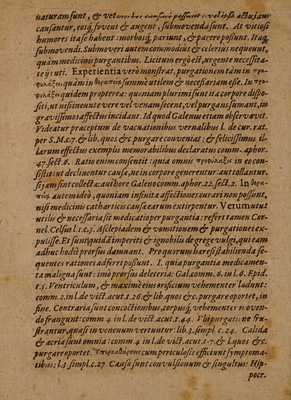 naturam sunt, &
causantur, eosq́; fouent & augent, submouenda sunt. At vitiosi
humores ita se habent: morbosq́; pariunt, & parere possunt. Itaq́;
submouendi. Submoueri autem commodius & celerius nequeunt,
quàm medicinis purgantibus. Licitum ergo est, vrgente necessita-
te ijs vti. Experientia verò monstrat, purgationem tam in προ-
φυλάξει quàm in θεραπεία summè vtilem & necessariam esse. In προφυ-
λάξει quidem, quoniam plurimi sunt ita corpore dispo-
siti, vt nisi ineunte vere vel venam secent, vel purgans sumant, in
grauissimos affectus incidant. Id quod Galenus etiam obseruauit.
Videatur præceptum de vacuationibus vernalibus l. de cur. rat.
per S.M.c.7. & lib. quos & c. purgare conueniat: & felicissimus il-
larum effectus exemplis memorabilibus declaratus comm. aphor.
47. sect. 6. Ratio enim consentit: quia omnis προφύλαξις in eo con-
sistit: vt declinentur causæ, ne in corpore generentur: aut tollantur,
si jam sunt collectæ: authore Galeno comm. aphor. 22. sect. 2. In θερα-
πεία autem ideò, quoniam infiniti affectiones curari non possunt,
nisi medicinis catharticis causæ earum extirpentur. Verùm vt vt
vtilis & necessaria sit medicatio per purgantia: refert tamen Cor-
nel. Celsus l. 1. c.3. Asclepiadem & vomitionem & purgationes ex-
pulisse. Et sunt quidā imperiti & ignobili de grege vulgi, qui eam
adhuc hodiè prorsus damnant. Pro quorum hæresi stabilienda se-
quentes rationes adferri possunt. 1. quia purgantia medicamen-
ta maligna sunt: imò prorsus deleteria: Gal. comm. 6. in l. 6. Epid.
t.5. Ventriculum, & maximè eius orificium vehementer lædunt:
comm. 2. in l. de vict. acut. t.26. & lib. quos &c. purgare oportet, in
fine. Contraria sunt concoctionibus, corpusq́; vehementer mouen-
do frangunt: comm. 4. in l. de vict. acut. t.44. Vis purgatiua ne fru-
strantur, quasi in venenum vertuntur: lib.3. simpl. c.24. Calida
& acria sunt omnia: comm. 4. in l. de vict. acut. t.7. & l. quos &c.
purgare oportet. Ὑπερκαθάρσεις cum periculosis efficiunt symptoma-
tibus: l.3. simpl. c.27. Causa sunt conuulsionum & singultus: Hip-
pocr.